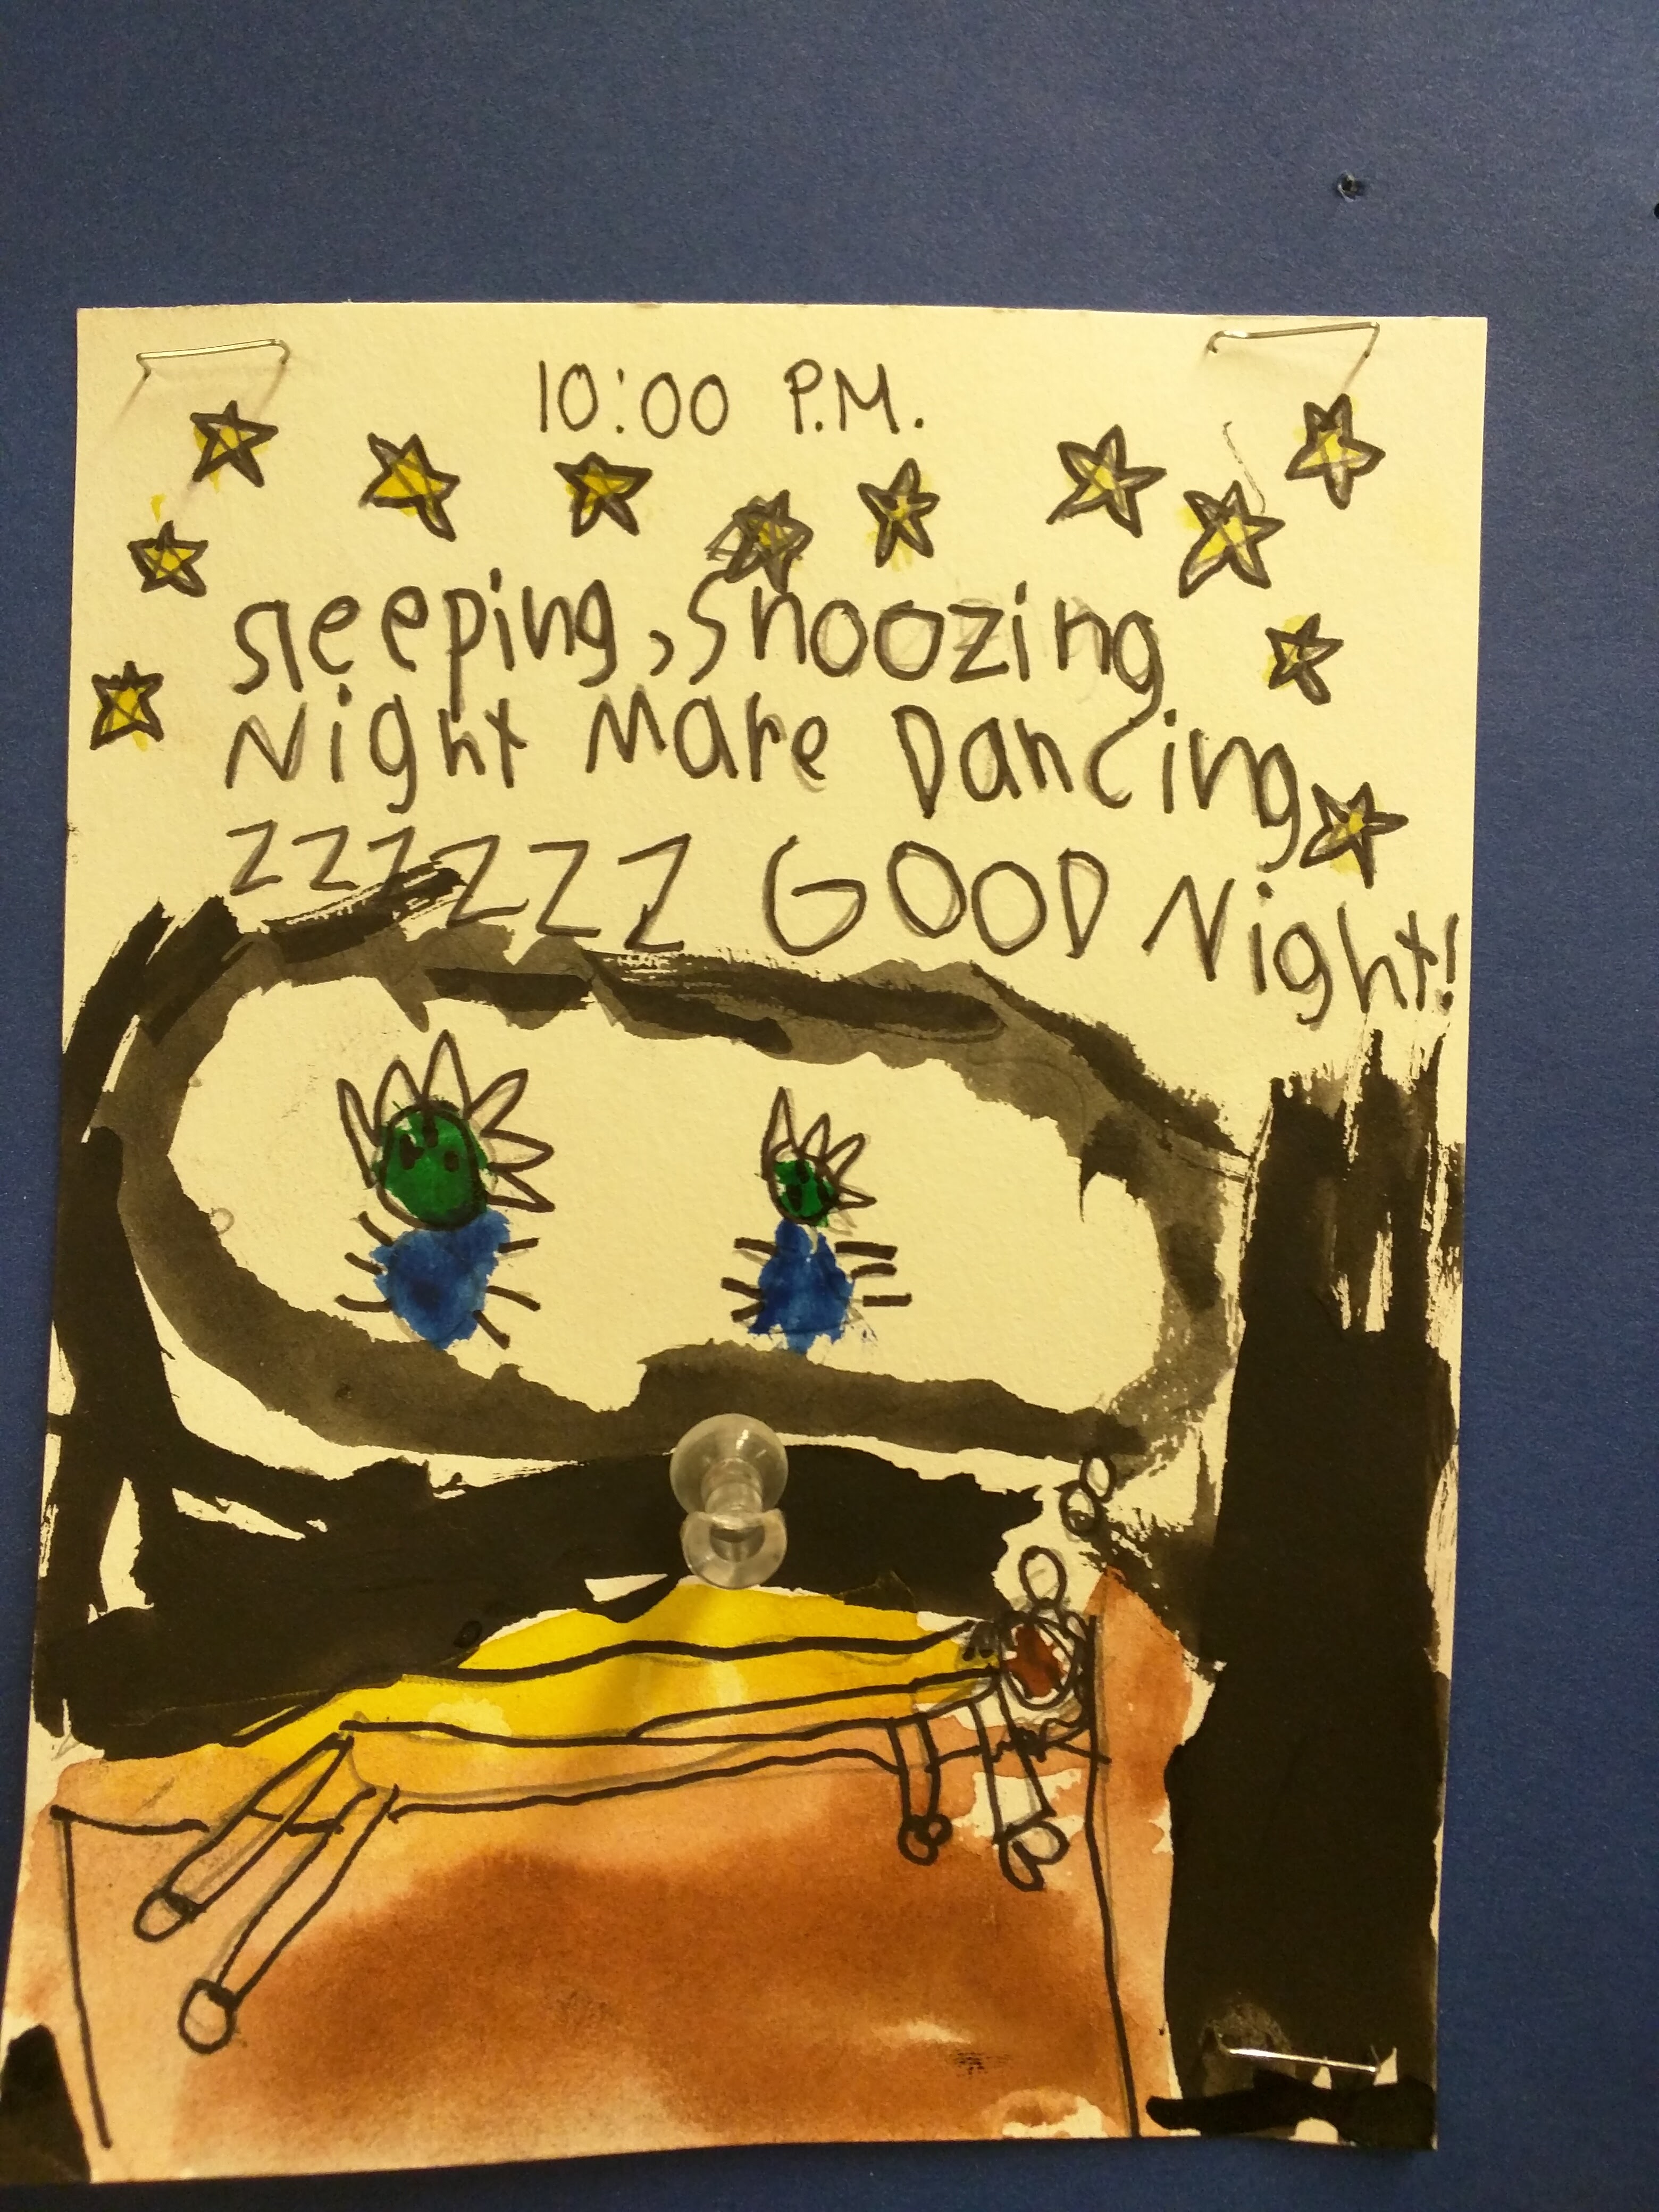 10:00 P.M.
sleeping, snoozing
Night Mare Dancing
ZZZZZZ GOOD Night!